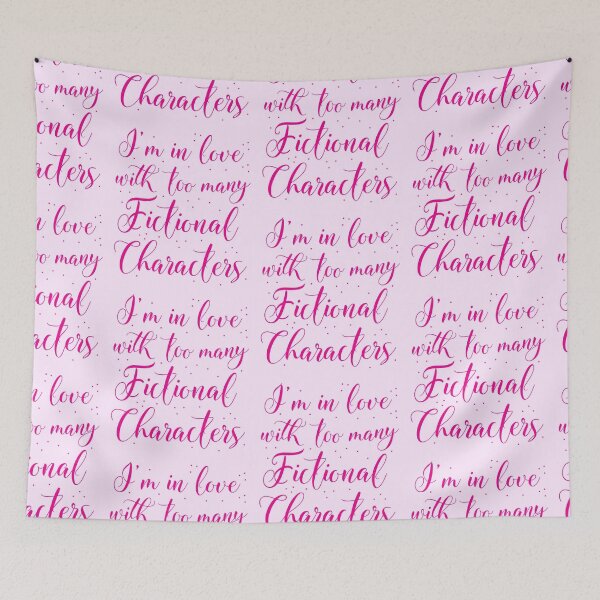 oo many
ional
acters
in love
oo many
ional
acters
in love
oo many
ional
acters
Characters
I'm in love
with too many
Fictional
Characters
I'm in love
with too many
Fictional
Characters
I'm in love
with too many
with too many
Fictional
Characters
I'm in love
with too many
Fictional
Characters
I'm in love
with too many
Fictional
Characters
Characters
I'm in love
with too many
Fictional
Characters
I'm in love
with too many
Fictional
Characters
I'm in love
with too many